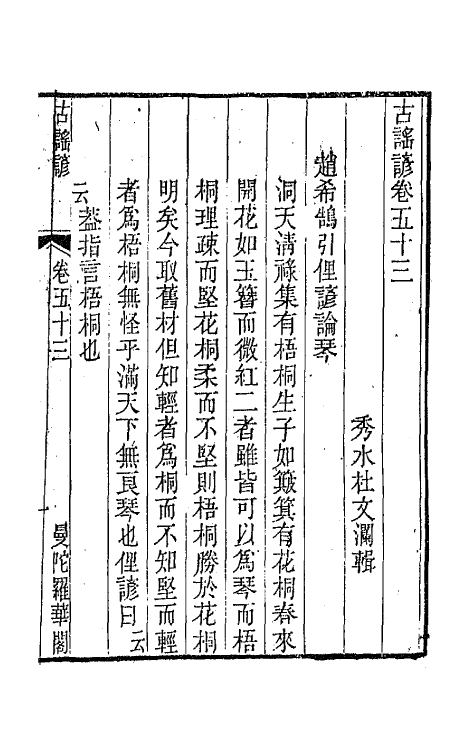 古謠諺卷五十三
秀水杜文瀾輯
趙希鵠引俚諺論琴
洞天淸祿集有梧桐生子如簸箕有花桐春來
開花如玉簪而微紅二者雖皆可以爲琴而梧
桐理疎而堅花桐柔而不堅則梧桐勝於花桐
明矣今取舊材但知輕者爲桐而不知堅而輕
者爲梧桐無怪乎滿天下無良琴也俚諺曰云
云葢指言梧桐也
古謠諺
卷五十三
曼陀羅華閣